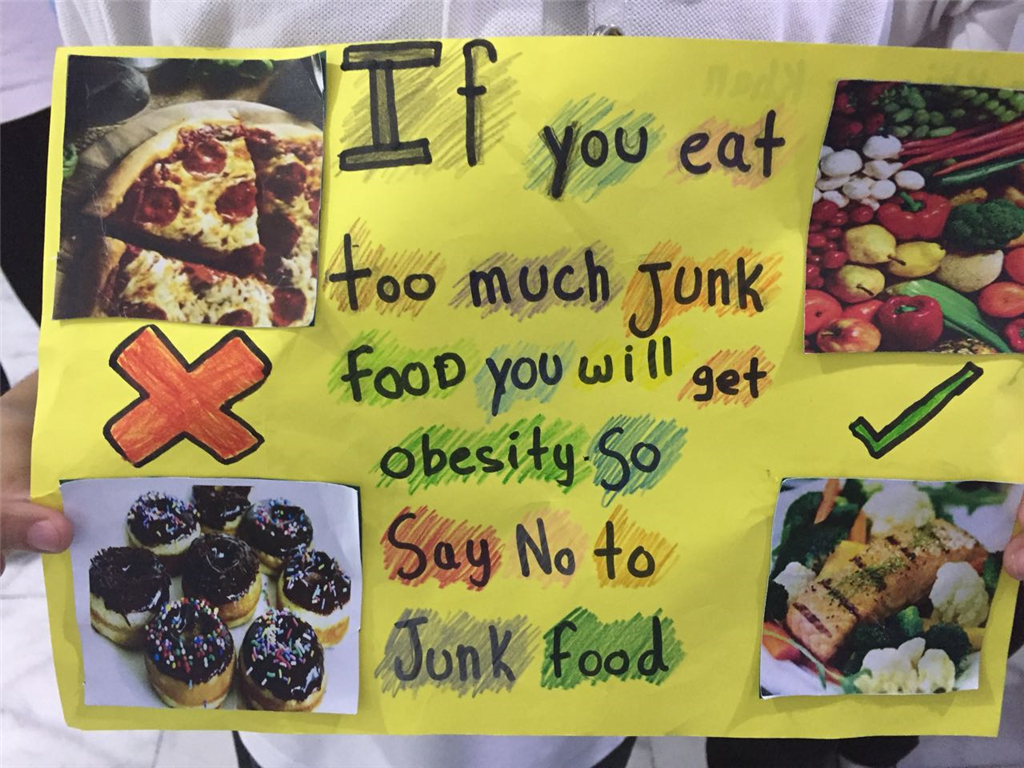 If you eat
too much Junk
food you will get
obesity. So
Say No to
Junk food
Khan